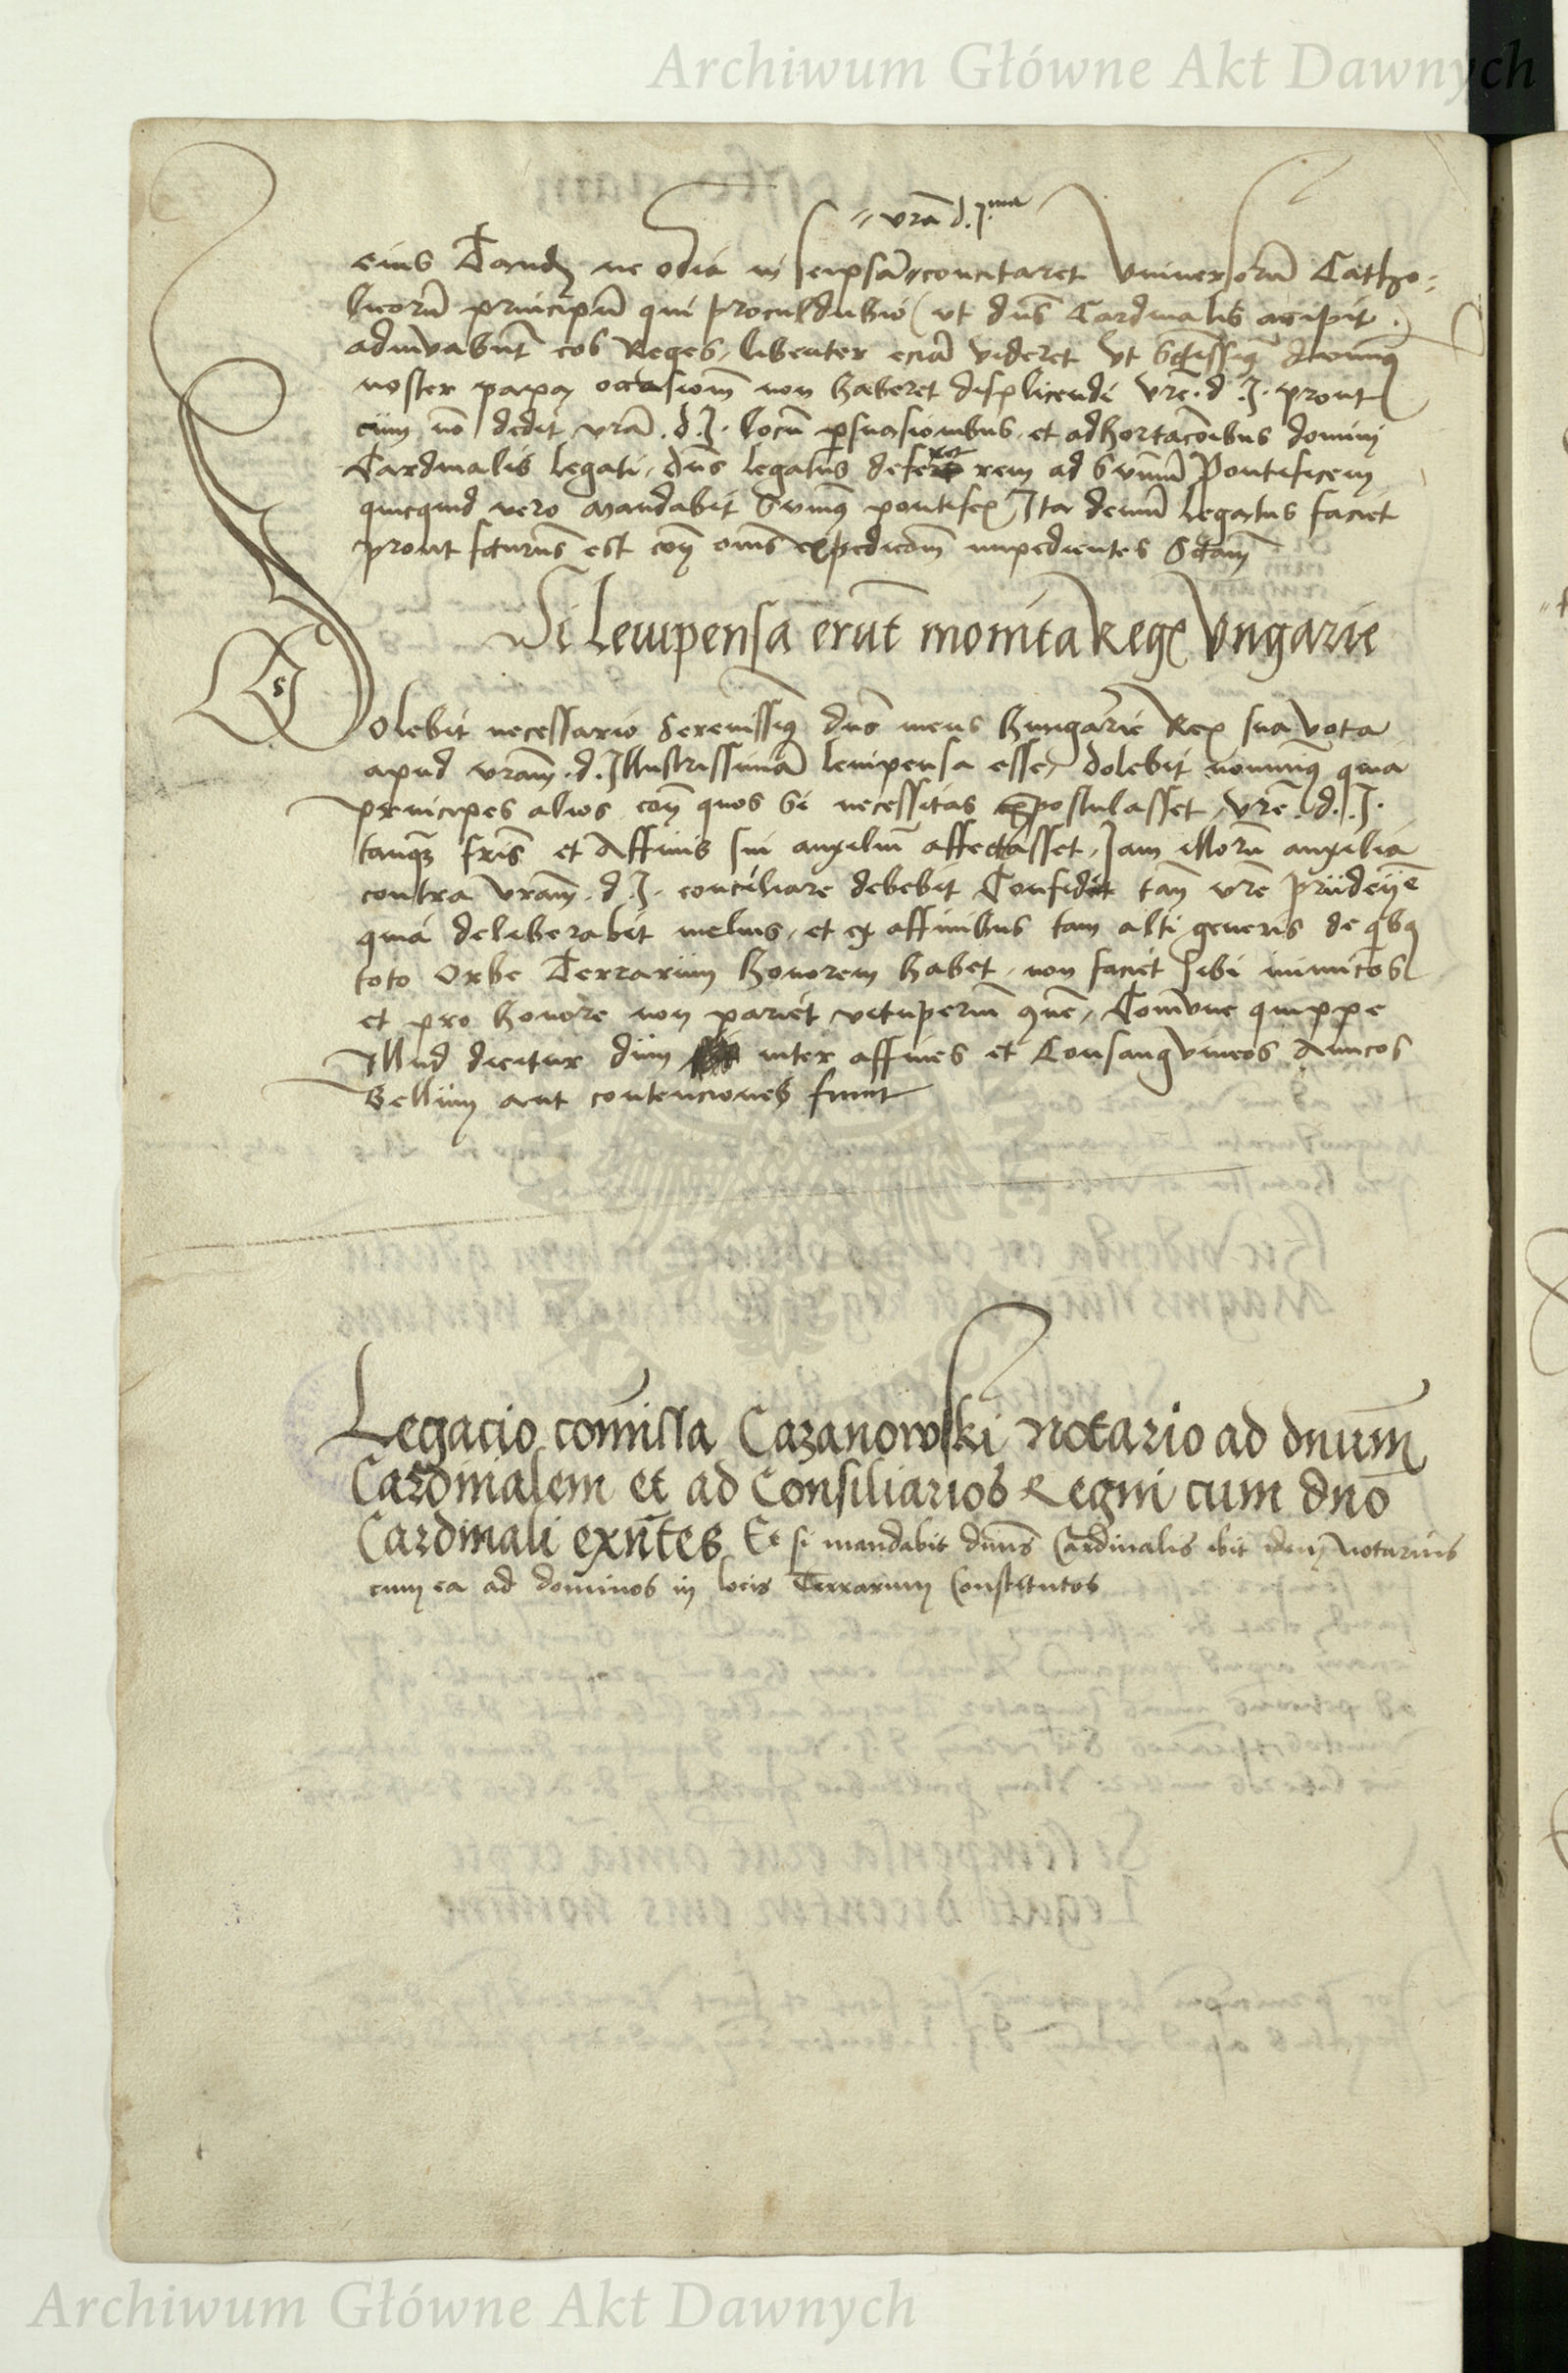 Archiwum Główne Akt Dawnych
vrã d. Jma
eius Tandē ne odia in seipsã concitaret Vniversorũ Catho-
licorũ principũ qui proculdubio (ut dns̃ Cardinalis accipit)
adiuvabunt̃ eos Reges, libenter eciã videret Vt Sctissiqz̃ dominq
noster papa occasionẽ non haberet displicendi Vrẽ. d. J. prout
cum nõ dedit vrã. d. J. locũ persuasionibus et adhortacõnibus domini
Cardinalis legati, dns̃ legatus deferet rem ad Summũ Pontificem
quicquid vero mandabit Sumũs pontifex Ita demũ legatus faciet
prout fcturus est con̄ omẽs expedicõm impedientes Sctam̃
Si leuipensã erũt monita Regꝭ Vngarie
Dolebit necessario Serenissiqz̃ dns̃ meus Hungarie Rex sua vota
apud vram̃. d. Illustrissimã leuipensa esse, dolebit nõminq̃ quia
principes alios con̄ quos si necessitas expostulasset, vrẽ. d. J.
tanq̃ fris̃ et Affinis sui auxiliũ affectasset, Jam illorũ auxilia
contra Vram̃. d. J. conciliare debebit Confidit tam̃ vrẽ prudencie
quia deliberabit melius, et ex affinibus tam alti generis de qibq
toto Orbe Terrarum honorem habet, non faciet sibi inimicos
et pro honore non pariet vituperiũ Comũne quippe
Illud dicitur dum inter affines et Consangvineos Amicos
Bellum aut contenciones fiunt
Legacio comissa Cazanowski Notario ad dnum̃
Cardinalem et ad Consiliarios Regni cum dnõ
Cardinali exñtes Et si mandabit dnus̃ Cardinalis ibit idem Notarius
cum ea ad dominos in locis Terrarum Constitutos
Archiwum Główne Akt Dawnych